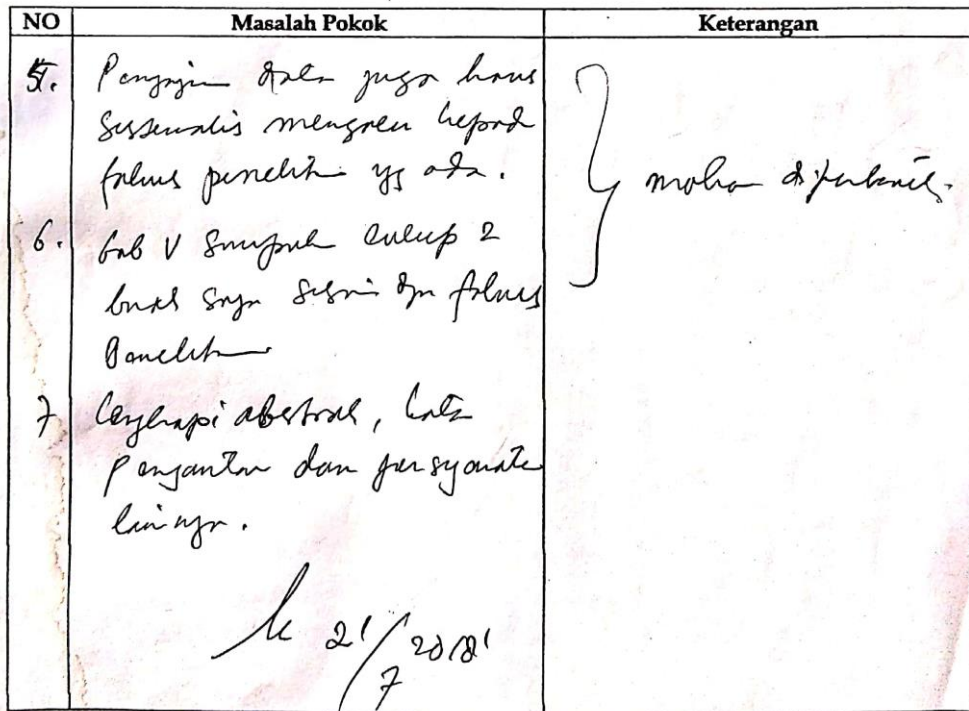 NO Masalah Pokok Keterangan
5. Penyajian data juga harus
sistematis mengacu kepada
fokus penelitian yg ada.
} mohon diperbaiki.
6. Bab V Simpulan cukup 2
buah saja sesuai dgn fokus
Penelitian
7 Lengkapi abstrak, kata
pengantar dan persyaratan
lainnya.
21/7